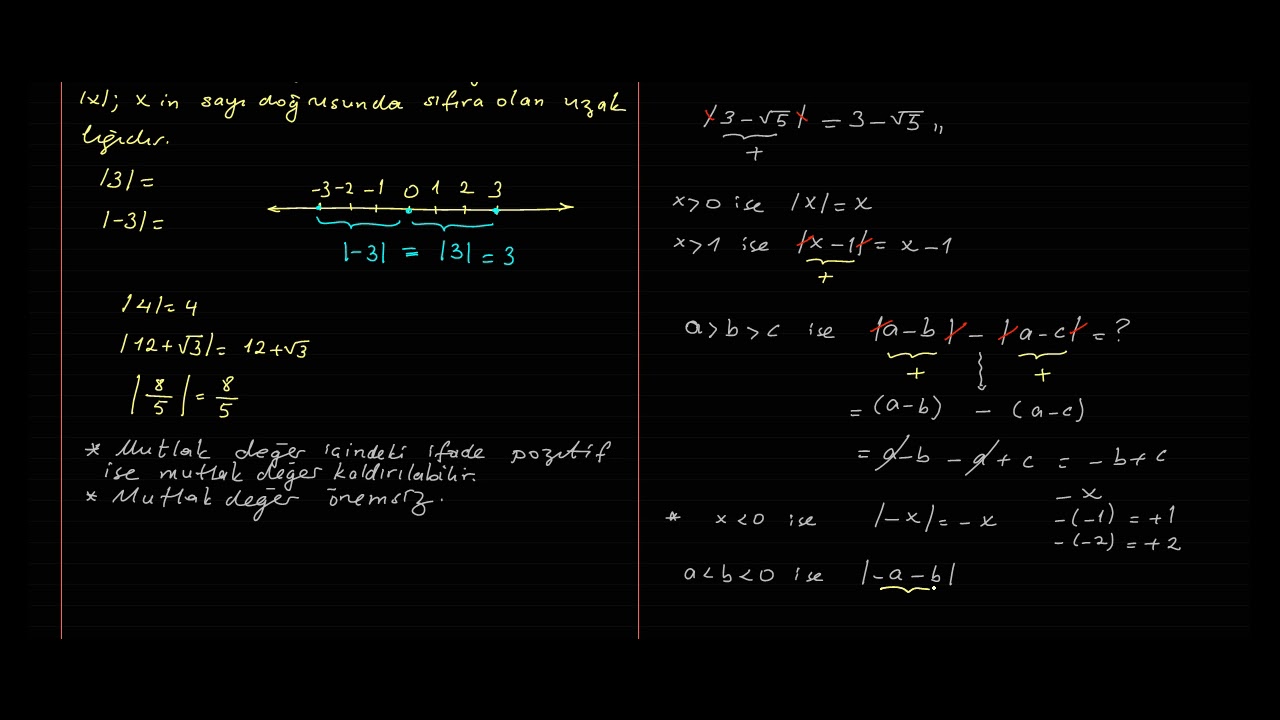 |x|; x in sayı doğrusunda sıfıra olan uzak
lığıdır.
|3| =
|-3| =
-3 -2 -1 0 1 2 3
|-3| = |3| = 3
|4| = 4
|12+√3| = 12+√3
|8/5| = 8/5
* Mutlak değer içindeki ifade pozitif
ise mutlak değer kaldırılabilir.
* Mutlak değer önemsiz.
|3-√5| = 3-√5 ,,
+
x>0 ise |x| = x
x>1 ise |x-1| = x-1
+
a>b>c ise |a-b| - |a-c| = ?
+ +
= (a-b) - (a-c)
= a-b - a+c = -b+c
-x
* x<0 ise |-x| = -x -(-1) = +1
-(-2) = +2
a<b<0 ise |-a-b|